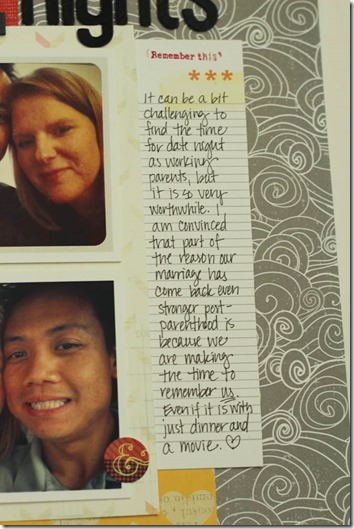 nights
(Remember this)
***
It can be a bit
challenging to
find the time
for date night
as working
parents, but
it is so very
worthwhile. I
am convinced
that part of
the reason our
marriage has
come back even
stronger post-
parenthood is
because we
are making
the time to
remember us.
Even if it is with
just dinner and
a movie. ♡